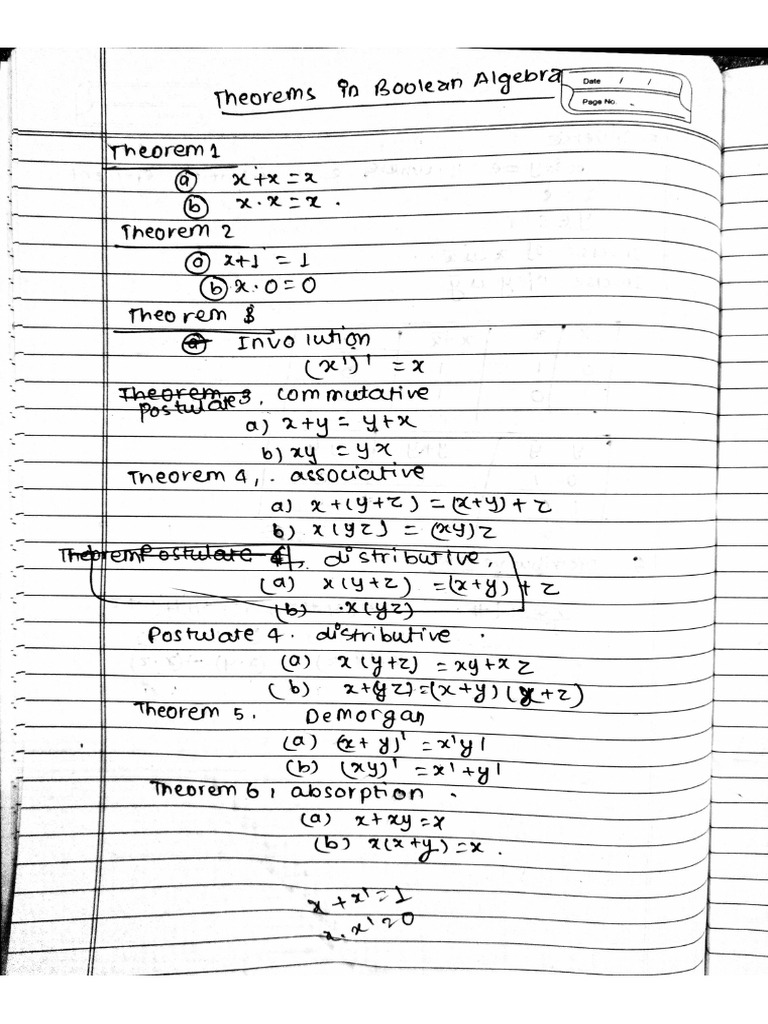 Theorems in Boolean Algebra
Date / /
Page No.
Theorem 1
(a) x+x=x
(b) x·x=x.
Theorem 2
(a) x+1=1
(b) x·0=0
Theorem 3
(a) Involution
(x')' = x
Theorem 3, commutative
Postulate
a) x+y = y+x
b) xy = yx
Theorem 4, associative
a) x+(y+z) = (x+y)+z
b) x(yz) = (xy)z
Theorem Postulate 4, distributive,
(a) x(y+z) = (x+y)+z
(b) x(yz)
Postulate 4. distributive.
(a) x(y+z) = xy+xz
(b) x+(yz)=(x+y)(x+z)
Theorem 5. Demorgan
(a) (x+y)' = x'y'
(b) (xy)' = x'+y'
Theorem 6, absorption.
(a) x+xy=x
(b) x(x+y)=x.
x+x'=1
x.x'=0